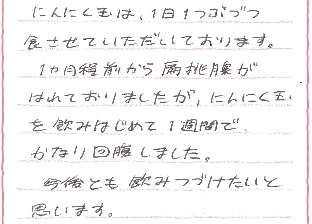 にんにく玉は、1日1つぶづつ
食させていただいております。
1ヶ月程前から扁桃腺が
はれておりましたが、にんにく玉
を飲みはじめて1週間で
かなり回腹しました。
今後とも飲みつづけたいと
思います。